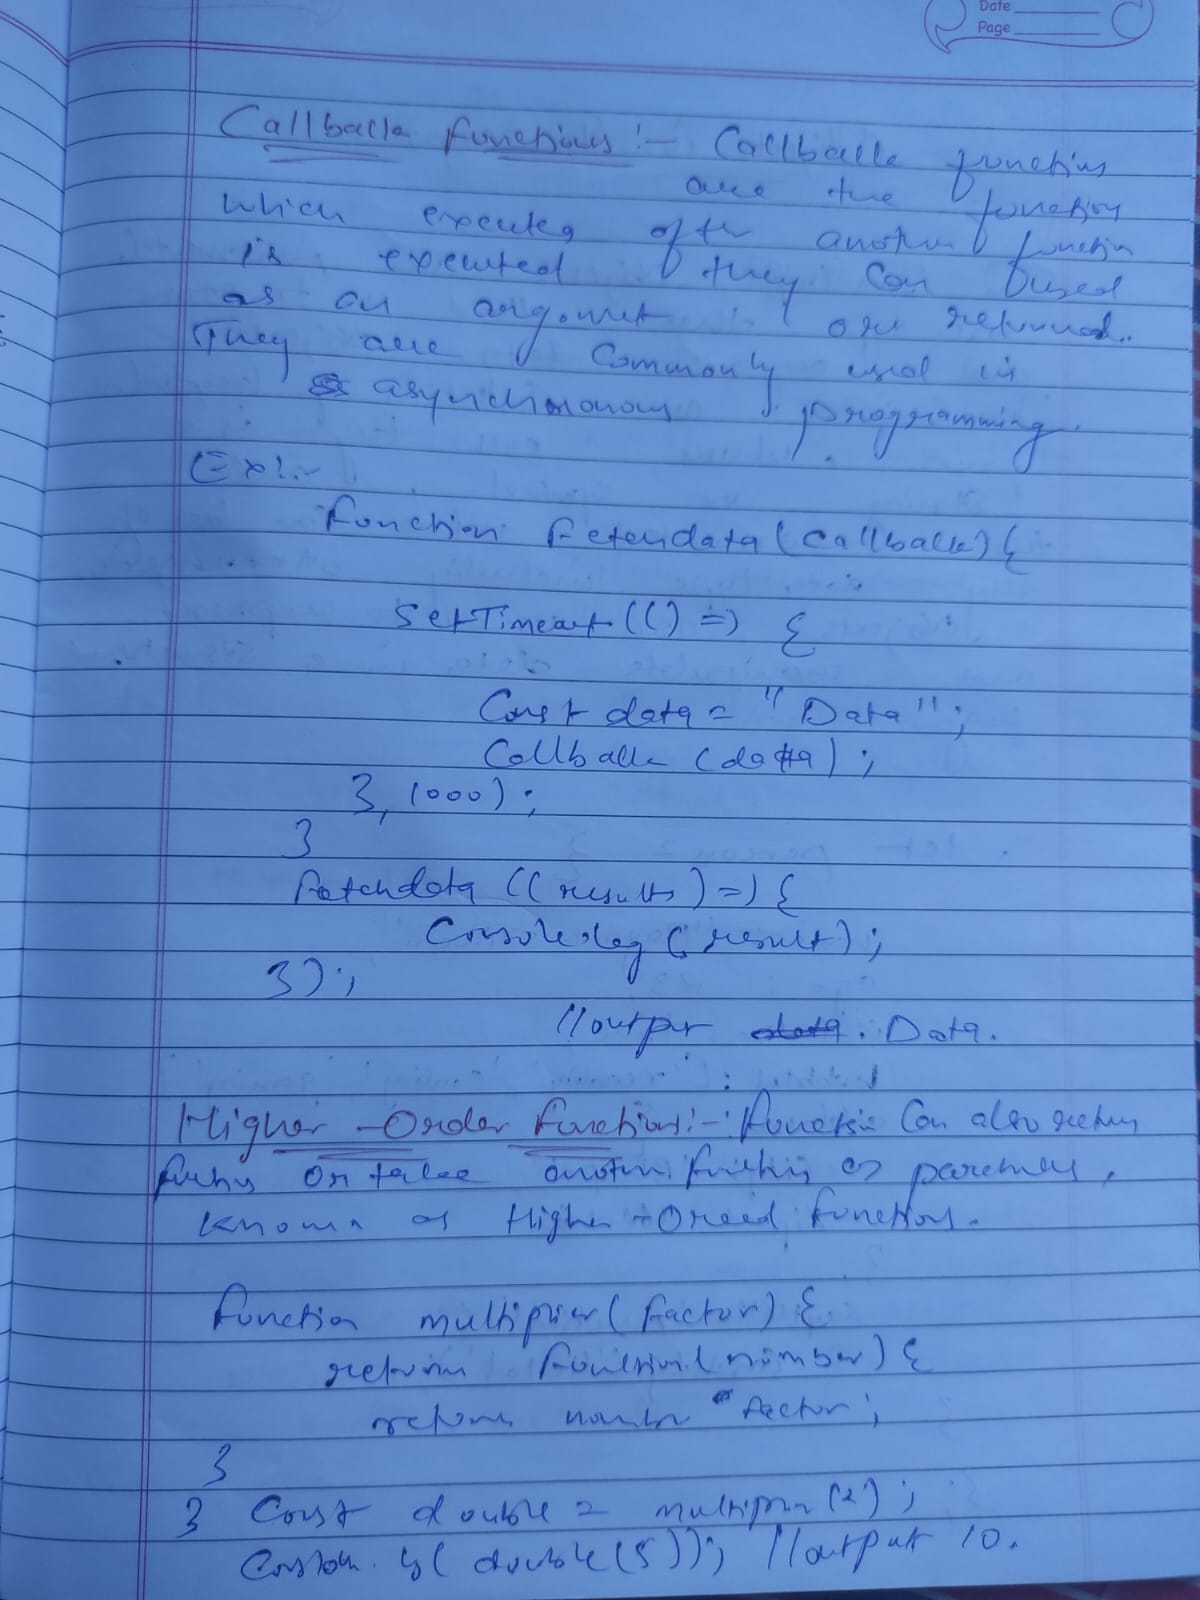 Date
Page
Callback functions :- Callback functions
are the function
which executes after another function
is executed they can be used
as an argument or returned.
They are commonly used in
asynchronous programming.
Ex:-
function fetchdata(callback){
setTimeout(() => {
Const data = "Data";
Callback (data);
}, 1000);
}
fetchdata ((results) => {
Console.log (result);
});
//output data. Data.
Higher-Order functions:- function Can also return
or take another as
known as Higher-Order functions.
function multiplier(factor) {
return function(number) {
return number * factor;
}
} Const double = multiplier(2);
Console.log(double(5)); //output 10.